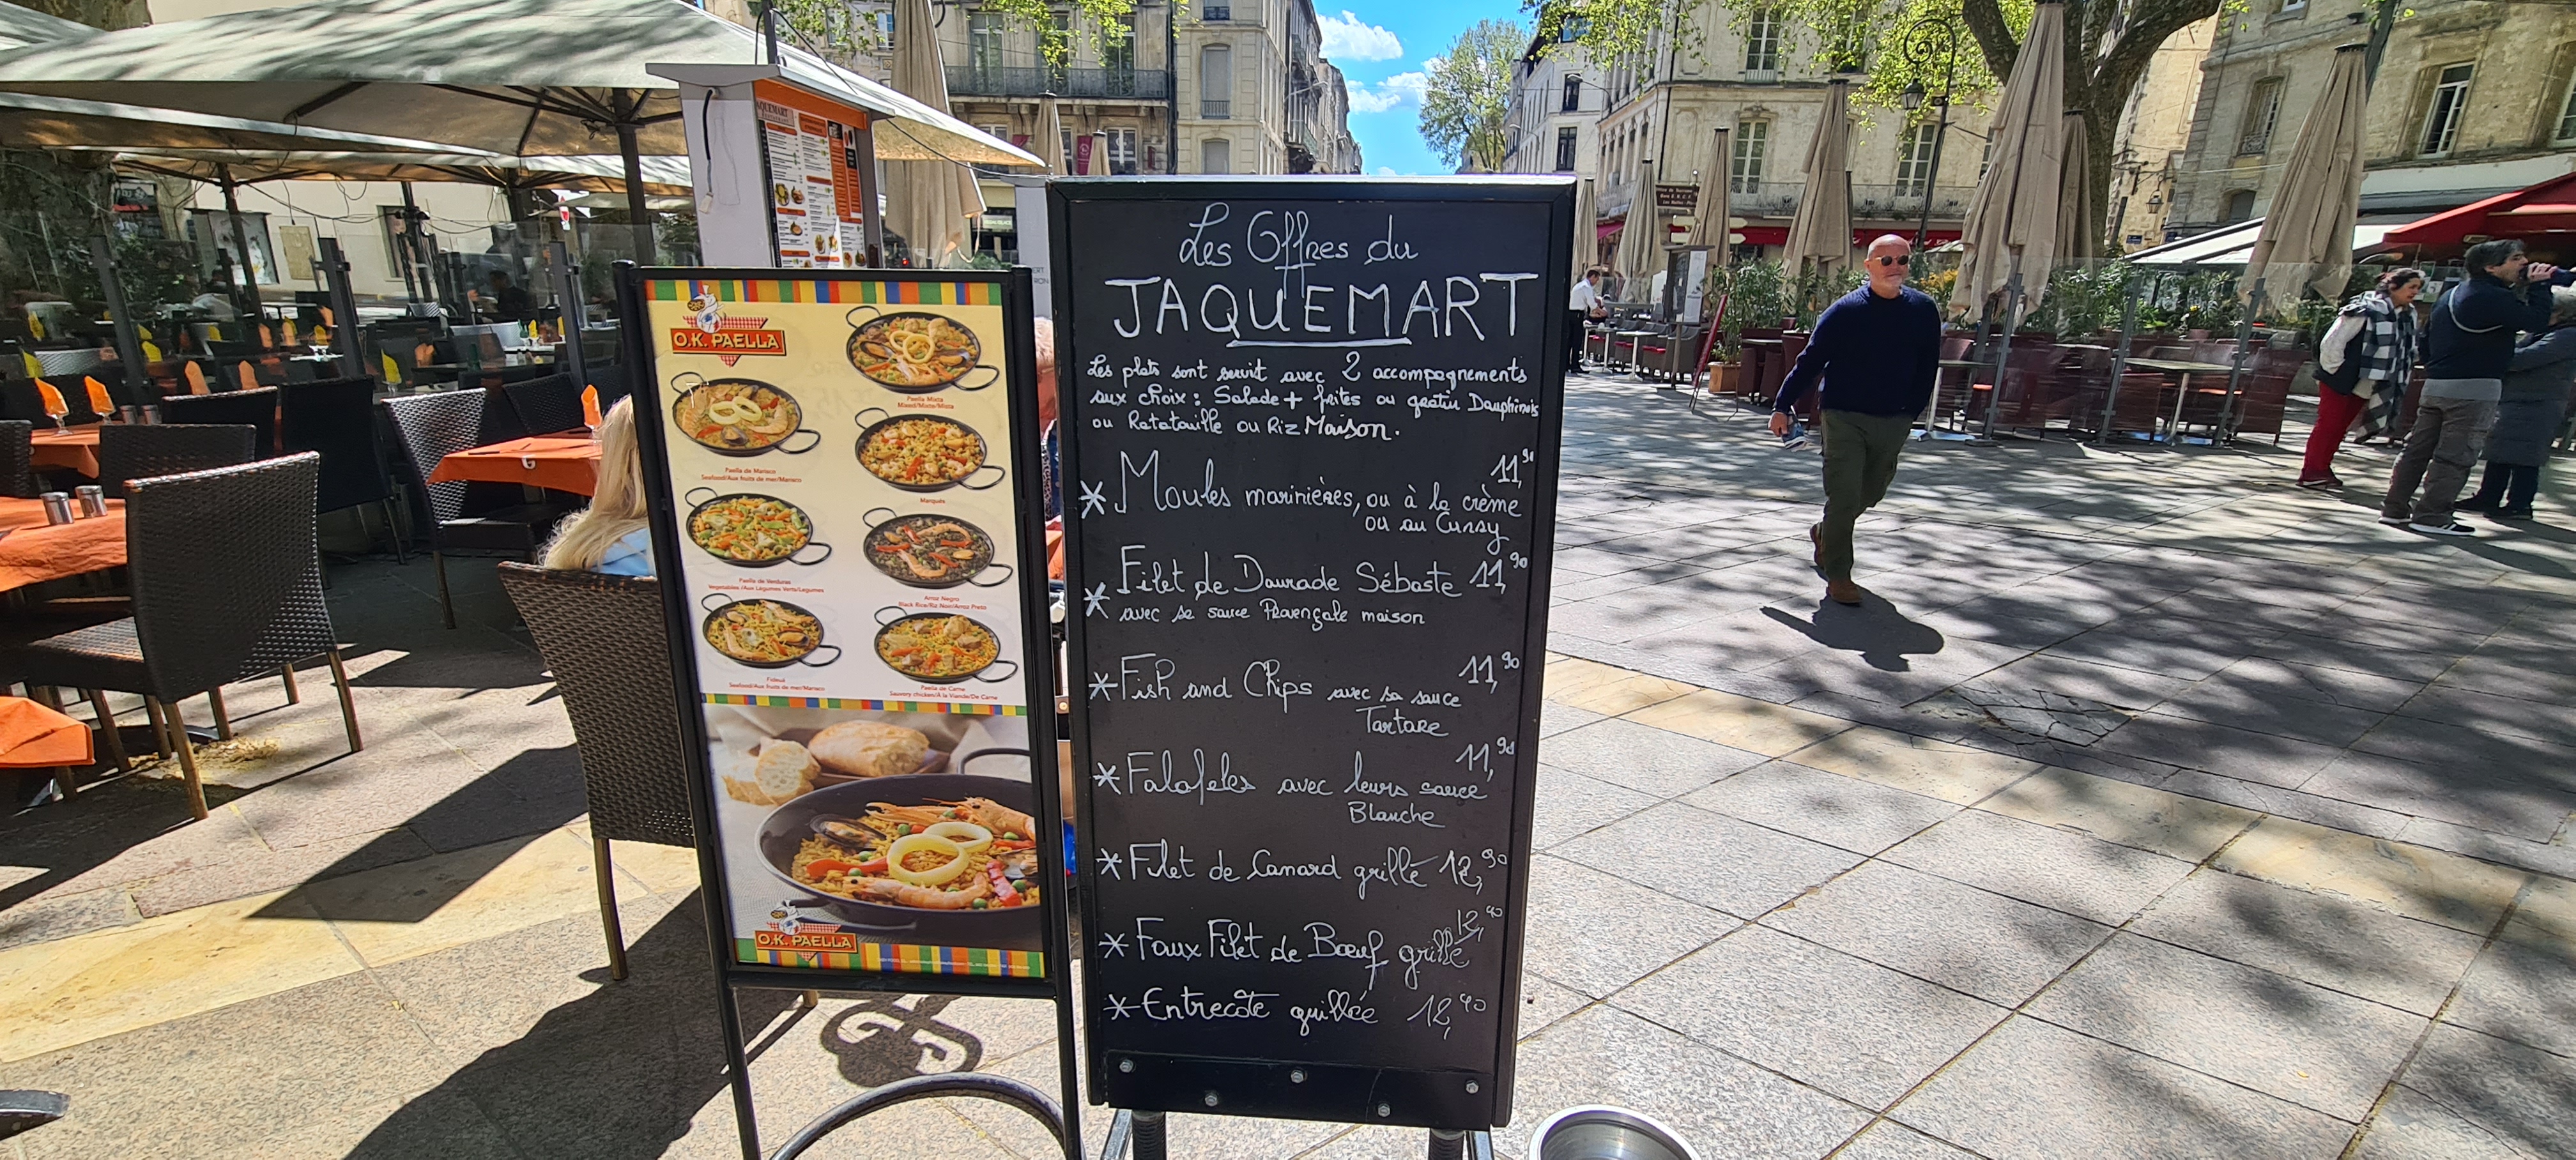 AQUEMART
O.K. PAELLA
Paella Mixta
Mixed/Mixte/Mista
Paella de Marisco
Seafood/Aux fruits de mer/Marisco
Marqués
Paella de Verduras
Vegetables /Aux Légumes Verts/Legumes
Arroz Negro
Black Rice/Riz Noir/Arroz Preto
Fideuá
Seafood/Aux fruits de mer/Marisco
Paella de Carne
Savoury chicken/À la Viande/De Carne
O.K. PAELLA
Les Offres du
JAQUEMART
Les plats sont servit avec 2 accompagnements
aux choix : Salade + frites ou gratin Dauphinois
ou Ratatouille ou Riz Maison.
* Moules marinières, ou à la crème 11,90
ou au Curry
* Filet de Daurade Sébaste 11,90
avec sa sauce Provençale maison
* Fish and Chips avec sa sauce 11,90
Tartare
* Falafeles avec leurs sauce 11,90
Blanche
* Filet de Canard grillé 12,90
* Faux Filet de Bœuf grillé 12,90
* Entrecôte grillée 12,90